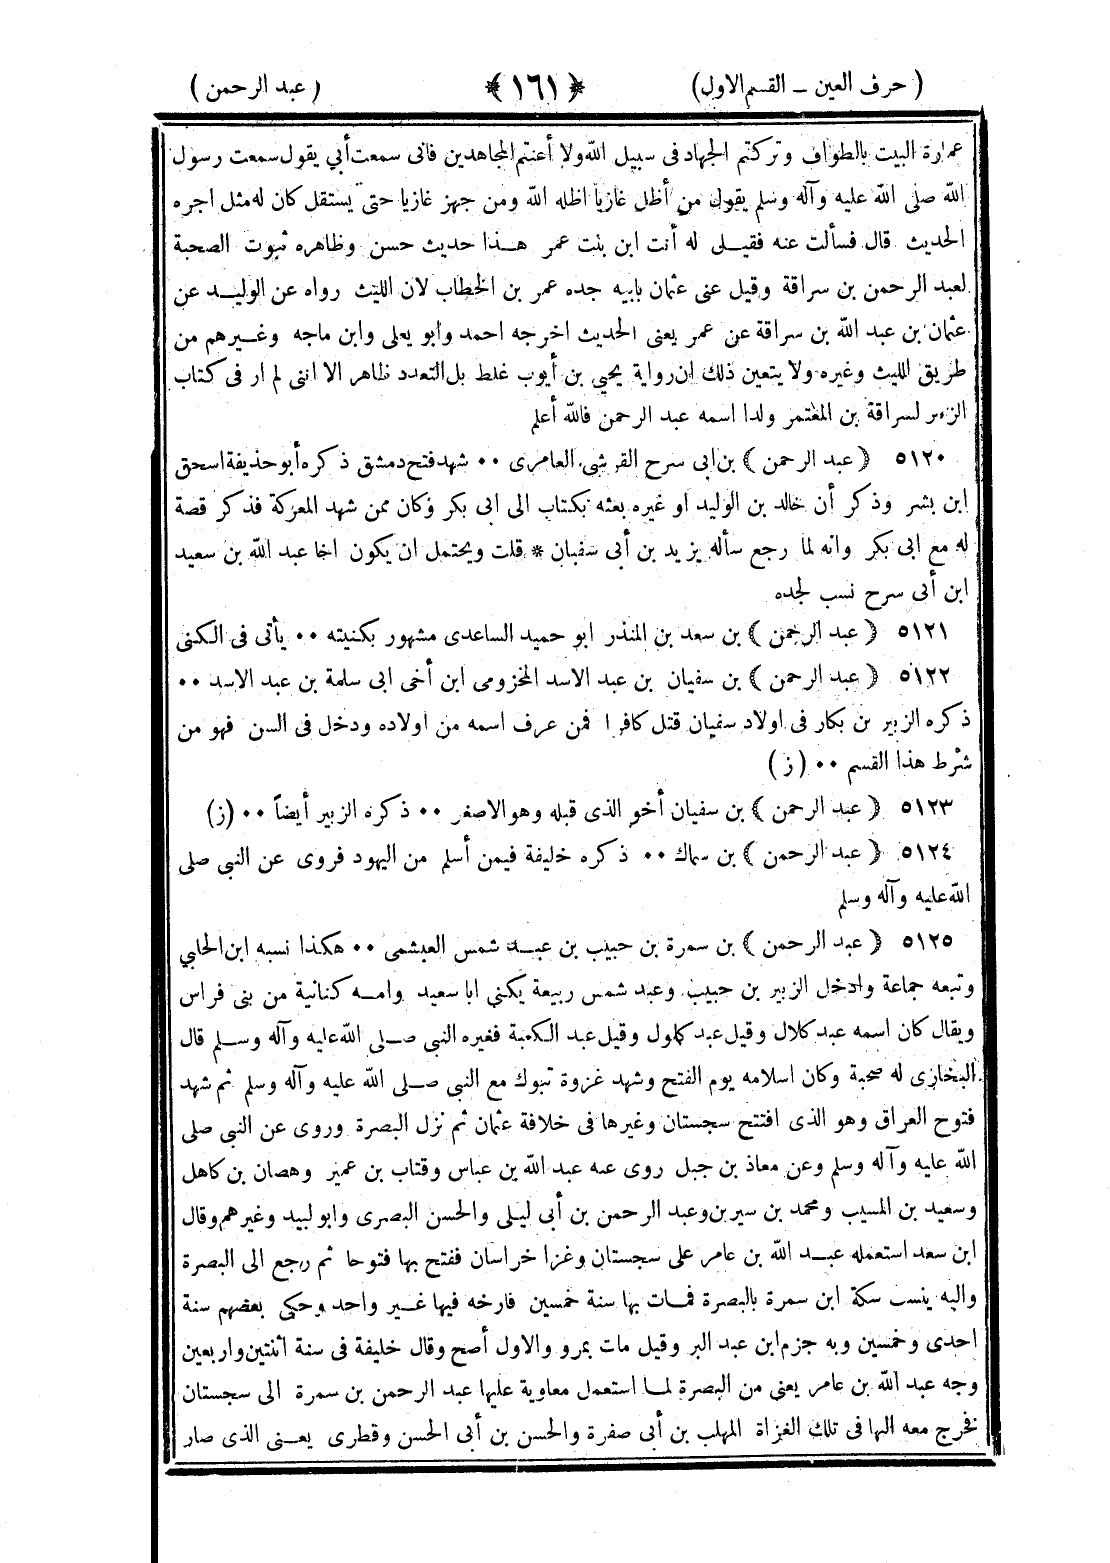 ( حرف العين – القسم الاول) ﴿ ١٦١ ﴾ ( عبد الرحمن )
عمارة البيت بالطواف وتركتم الجهاد فى سبيل الله ولا أعنتم المجاهدين فانى سمعت أبي يقول سمعت رسول
الله صلى الله عليه وآله وسلم يقول من أظل غازيا اظله الله ومن جهز غازيا حتى يستقل كان له مثل اجره
الحديث قال فسألت عنه فقيل له أنت ابن بنت عمر هذا حديث حسن وظاهره ثبوت الصحبة
لعبد الرحمن بن سراقة وقيل عنى عثمان بابيه جده عمر بن الخطاب لان الليث رواه عن الوليد عن
عثمان بن عبد الله بن سراقة عن عمر يعنى الحديث اخرجه احمد وابو يعلى وابن ماجه وغيرهم من
طريق الليث وغيره ولا يتعين ذلك ان رواية يحيى بن أيوب غلط بل التعدد ظاهر الا اننى لم ار فى كتاب
الزبير لسراقة بن المعتمر ولدا اسمه عبد الرحمن فالله أعلم
٥١٢٠ ﴿ عبد الرحمن ﴾ بن ابى سرح القرشى العامرى ٠٠ شهد فتح دمشق ذكره أبو حذيفة اسحق
ابن بشر وذكر أن خالد بن الوليد او غيره بعثه بكتاب الى ابى بكر وكان ممن شهد المعركة فذكر قصة
له مع ابى بكر وانه لما رجع سأله يزيد بن أبى سفيان * قلت ويحتمل ان يكون اخا عبد الله بن سعيد
ابن أبى سرح نسب لجده
٥١٢١ ﴿ عبد الرحمن ﴾ بن سعد بن المنذر ابو حميد الساعدى مشهور بكنيته ٠٠ يأتى فى الكنى
٥١٢٢ ﴿ عبد الرحمن ﴾ بن سفيان بن عبد الاسد المخزومى ابن أخى ابى سلمة بن عبد الاسد ٠٠
ذكره الزبير بن بكار فى اولاد سفيان قتل كافرا فمن عرف اسمه من اولاده ودخل فى السن فهو من
شرط هذا القسم ٠٠ (ز)
٥١٢٣ ﴿ عبد الرحمن ﴾ بن سفيان أخو الذى قبله وهو الاصغر ٠٠ ذكره الزبير أيضاً ٠٠ (ز)
٥١٢٤ ﴿ عبد الرحمن ﴾ بن سماك ٠٠ ذكره خليفة فيمن أسلم من اليهود فروى عن النبي صلى
الله عليه وآله وسلم
٥١٢٥ ﴿ عبد الرحمن ﴾ بن سمرة بن حبيب بن عبد شمس العبشمى ٠٠ هكذا نسبه ابن الحلبي
وتبعه جماعة وادخل الزبير بن حبيب وعبد شمس ربيعة يكنى ابا سعيد وامه كنانية من بنى فراس
ويقال كان اسمه عبد كلال وقيل عبد كلول وقيل عبد الكعبة فغيره النبي صلى الله عليه وآله وسلم قال
البخارى له صحبة وكان اسلامه يوم الفتح وشهد غزوة تبوك مع النبي صلى الله عليه وآله وسلم ثم شهد
فتوح العراق وهو الذى افتتح سجستان وغيرها فى خلافة عثمان ثم نزل البصرة وروى عن النبي صلى
الله عليه وآله وسلم وعن معاذ بن جبل روى عنه عبد الله بن عباس وقتاب بن عمير وهصان بن كاهل
وسعيد بن المسيب ومحمد بن سيرين وعبد الرحمن بن أبى ليلى والحسن البصرى وابو لبيد وغيرهم وقال
ابن سعد استعمله عبد الله بن عامر على سجستان وغزا خراسان ففتح بها فتوحا ثم رجع الى البصرة
واليه ينسب سكة ابن سمرة بالبصرة فمات بها سنة خمسين فارخه فيها غير واحد وحكى بعضهم سنة
احدى وخمسين وبه جزم ابن عبد البر وقيل مات بمرو والاول أصح وقال خليفة فى سنة اثنتين واربعين
وجه عبد الله بن عامر يعنى من البصرة لما استعمل معاوية عليها عبد الرحمن بن سمرة الى سجستان
فخرج معه اليها فى تلك الغزاة المهلب بن أبى صفرة والحسن بن أبى الحسن وقطرى يعنى الذى صار